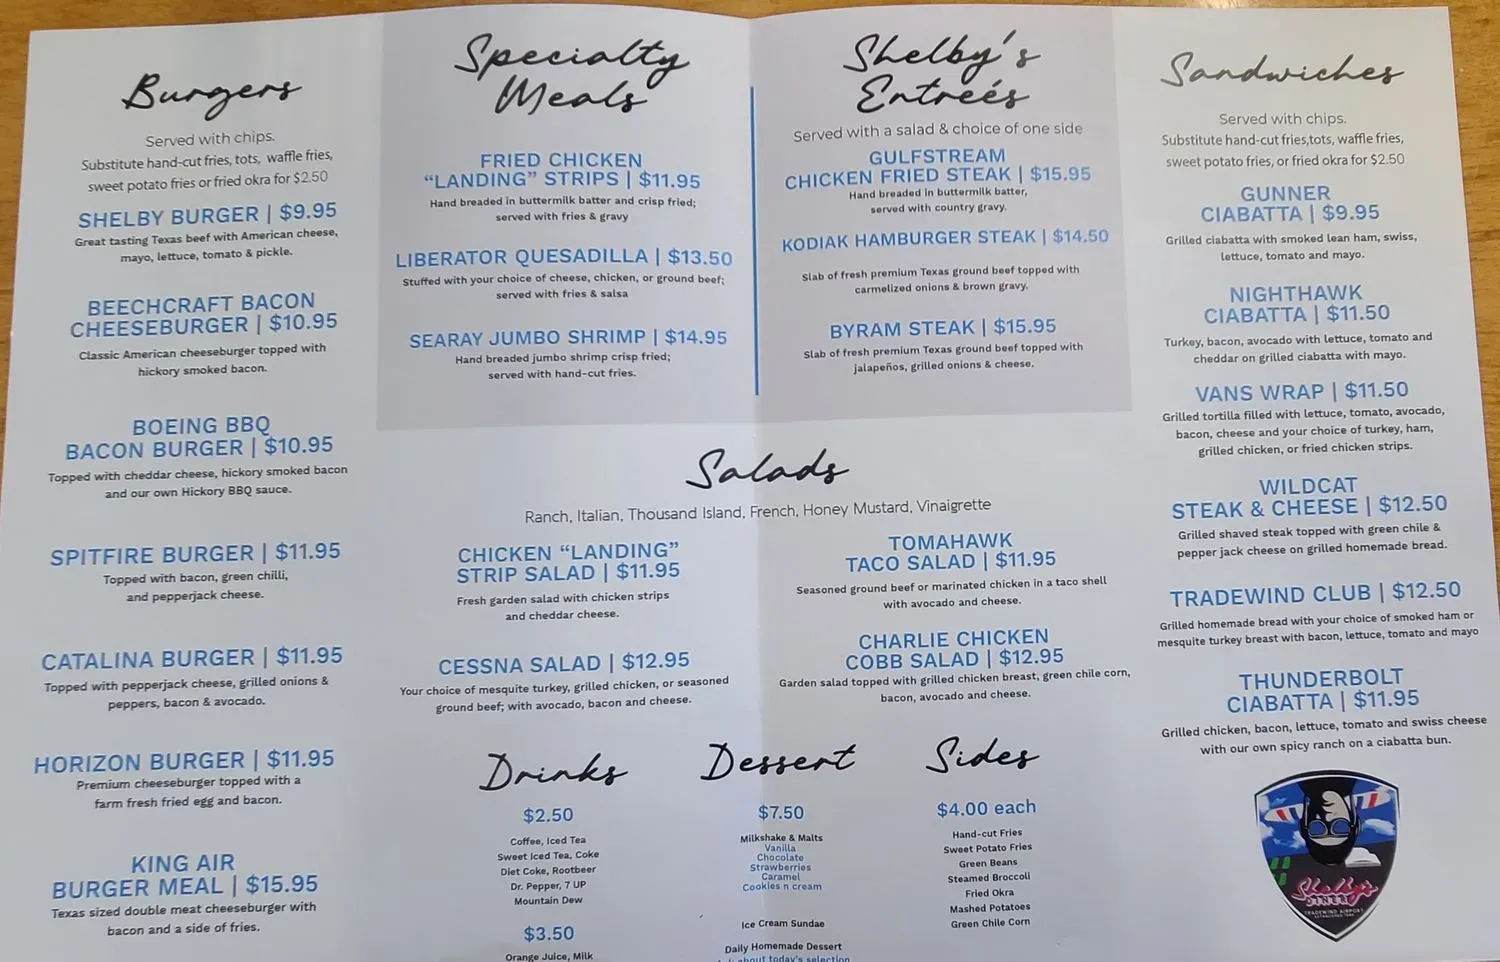 Burgers
Served with chips.
Substitute hand-cut fries, tots, waffle fries,
sweet potato fries or fried okra for $2.50
SHELBY BURGER | $9.95
Great tasting Texas beef with American cheese,
mayo, lettuce, tomato & pickle.
BEECHCRAFT BACON
CHEESEBURGER | $10.95
Classic American cheeseburger topped with
hickory smoked bacon.
BOEING BBQ
BACON BURGER | $10.95
Topped with cheddar cheese, hickory smoked bacon
and our own Hickory BBQ sauce.
SPITFIRE BURGER | $11.95
Topped with bacon, green chilli,
and pepperjack cheese.
CATALINA BURGER | $11.95
Topped with pepperjack cheese, grilled onions &
peppers, bacon & avocado.
HORIZON BURGER | $11.95
Premium cheeseburger topped with a
farm fresh fried egg and bacon.
KING AIR
BURGER MEAL | $15.95
Texas sized double meat cheeseburger with
bacon and a side of fries.
Specialty
Meals
FRIED CHICKEN
“LANDING” STRIPS | $11.95
Hand breaded in buttermilk batter and crisp fried;
served with fries & gravy
LIBERATOR QUESADILLA | $13.50
Stuffed with your choice of cheese, chicken, or ground beef;
served with fries & salsa
SEARAY JUMBO SHRIMP | $14.95
Hand breaded jumbo shrimp crisp fried;
served with hand-cut fries.
Shelby's
Entreés
Served with a salad & choice of one side
GULFSTREAM
CHICKEN FRIED STEAK | $15.95
Hand breaded in buttermilk batter,
served with country gravy.
KODIAK HAMBURGER STEAK | $14.50
Slab of fresh premium Texas ground beef topped with
carmelized onions & brown gravy.
BYRAM STEAK | $15.95
Slab of fresh premium Texas ground beef topped with
jalapeños, grilled onions & cheese.
Salads
Ranch, Italian, Thousand Island, French, Honey Mustard, Vinaigrette
CHICKEN “LANDING”
STRIP SALAD | $11.95
Fresh garden salad with chicken strips
and cheddar cheese.
CESSNA SALAD | $12.95
Your choice of mesquite turkey, grilled chicken, or seasoned
ground beef; with avocado, bacon and cheese.
TOMAHAWK
TACO SALAD | $11.95
Seasoned ground beef or marinated chicken in a taco shell
with avocado and cheese.
CHARLIE CHICKEN
COBB SALAD | $12.95
Garden salad topped with grilled chicken breast, green chile corn,
bacon, avocado and cheese.
Drinks
$2.50
Coffee, Iced Tea
Sweet Iced Tea, Coke
Diet Coke, Rootbeer
Dr. Pepper, 7 UP
Mountain Dew
$3.50
Orange Juice, Milk
Dessert
$7.50
Milkshake & Malts
Vanilla
Chocolate
Strawberries
Caramel
Cookies n cream
Ice Cream Sundae
Daily Homemade Dessert
about today's selection
Sides
$4.00 each
Hand-cut Fries
Sweet Potato Fries
Green Beans
Steamed Broccoli
Fried Okra
Mashed Potatoes
Green Chile Corn
Sandwiches
Served with chips.
Substitute hand-cut fries,tots, waffle fries,
sweet potato fries, or fried okra for $2.50
GUNNER
CIABATTA | $9.95
Grilled ciabatta with smoked lean ham, swiss,
lettuce, tomato and mayo.
NIGHTHAWK
CIABATTA | $11.50
Turkey, bacon, avocado with lettuce, tomato and
cheddar on grilled ciabatta with mayo.
VANS WRAP | $11.50
Grilled tortilla filled with lettuce, tomato, avocado,
bacon, cheese and your choice of turkey, ham,
grilled chicken, or fried chicken strips.
WILDCAT
STEAK & CHEESE | $12.50
Grilled shaved steak topped with green chile &
pepper jack cheese on grilled homemade bread.
TRADEWIND CLUB | $12.50
Grilled homemade bread with your choice of smoked ham or
mesquite turkey breast with bacon, lettuce, tomato and mayo
THUNDERBOLT
CIABATTA | $11.95
Grilled chicken, bacon, lettuce, tomato and swiss cheese
with our own spicy ranch on a ciabatta bun.
Shelby's
DINER
TRADEWIND AIRPORT